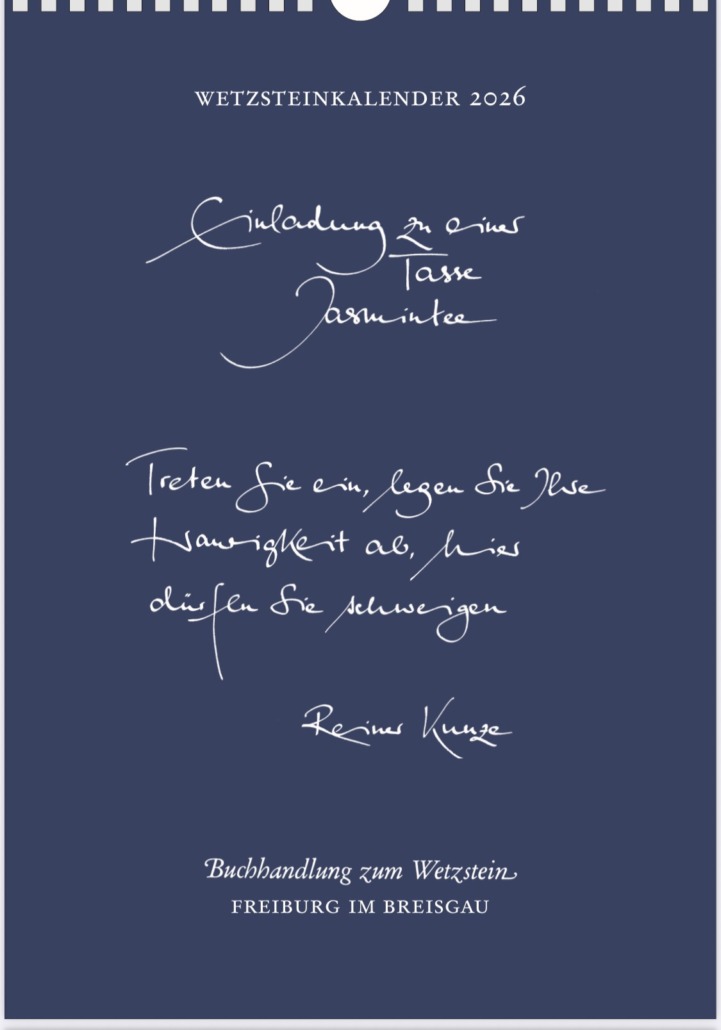 WETZSTEINKALENDER 2026
Einladung zu einer
Tasse
Jasmintee
Treten Sie ein, legen Sie Ihre
traurigkeit ab, hier
dürfen Sie schweigen
Reiner Kunze
Buchhandlung zum Wetzstein
FREIBURG IM BREISGAU